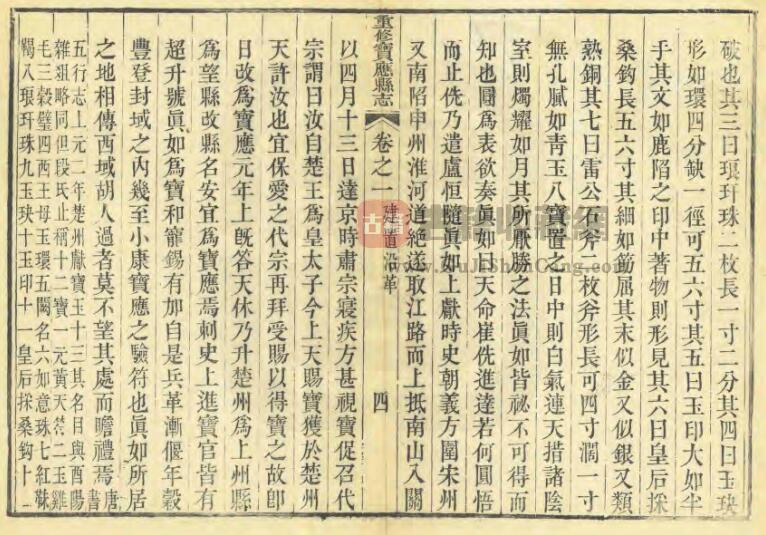 破也其三曰琅玕珠二枚長一寸二分其四曰玉玦
形如環四分缺一徑可五六寸其五曰玉印大如半
手其文如鹿陷之印中著物則形見其六曰皇后採
桑鈎長五六寸其細如筯屈其末似金又似銀又類
熟銅其七曰雷公石斧二枚斧形長可四寸濶一寸
無孔膩如青玉八寶置之日中則白氣連天措諸陰
室則燭耀如月其所厭勝之法眞如皆祕不可得而
知也圓爲表欲奏眞如曰天命崔侁進達若何圓悟
而止侁乃遣盧恒隨眞如上獻時史朝義方圍宋州
又南陷申州淮河道絶遂取江路而上抵南山入關
重修寶應縣志 卷之一 建置沿革 四
以四月十三日達京時肅宗寢疾方甚視寶促召代
宗謂曰汝自楚王爲皇太子今上天賜寶獲於楚州
天許汝也宜保愛之代宗再拜受賜以得寶之故卽
日改爲寶應元年上旣答天休乃升楚州爲上州縣
爲望縣改縣名安宜爲寶應焉刺史上進寶官皆有
超升號眞如爲寶和寵錫有加自是兵革漸偃年穀
豐登封域之內幾至小康寶應之驗符也眞如所居
之地相傳西域胡人過者莫不望其處而瞻禮焉唐書
五行志上元二年楚州獻寶玉十三其名目與酉陽
雜俎略同但段氏止稱十二寶一元黃天符二玉雞
毛三穀璧四西王母玉環五闕名六如意珠七紅靺
鞨八琅玕珠九玉玦十玉印十一皇后採桑鈎十二
古籍
古籍收藏網
www.GuJiShouCang.com